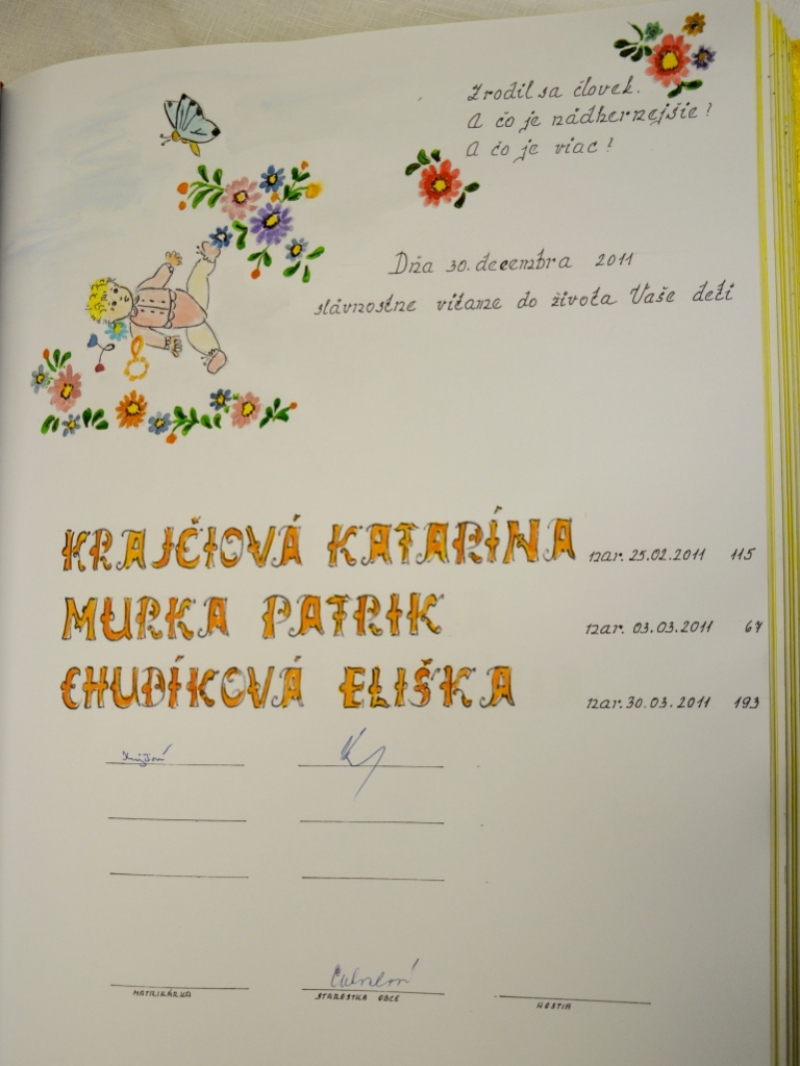 Zrodil sa človek.
A čo je nádhernejšie?
A čo je viac?
Dňa 30. decembra 2011
slávnostne vítame do života Vaše deti
KRAJČIOVÁ KATARÍNA nar. 25.02.2011 115
MURKA PATRIK nar. 03.03.2011 67
CHUDÍKOVÁ ELIŠKA nar. 30.03.2011 193
MATRIKÁRKA
STAROSTKA OBCE
HOSTIA